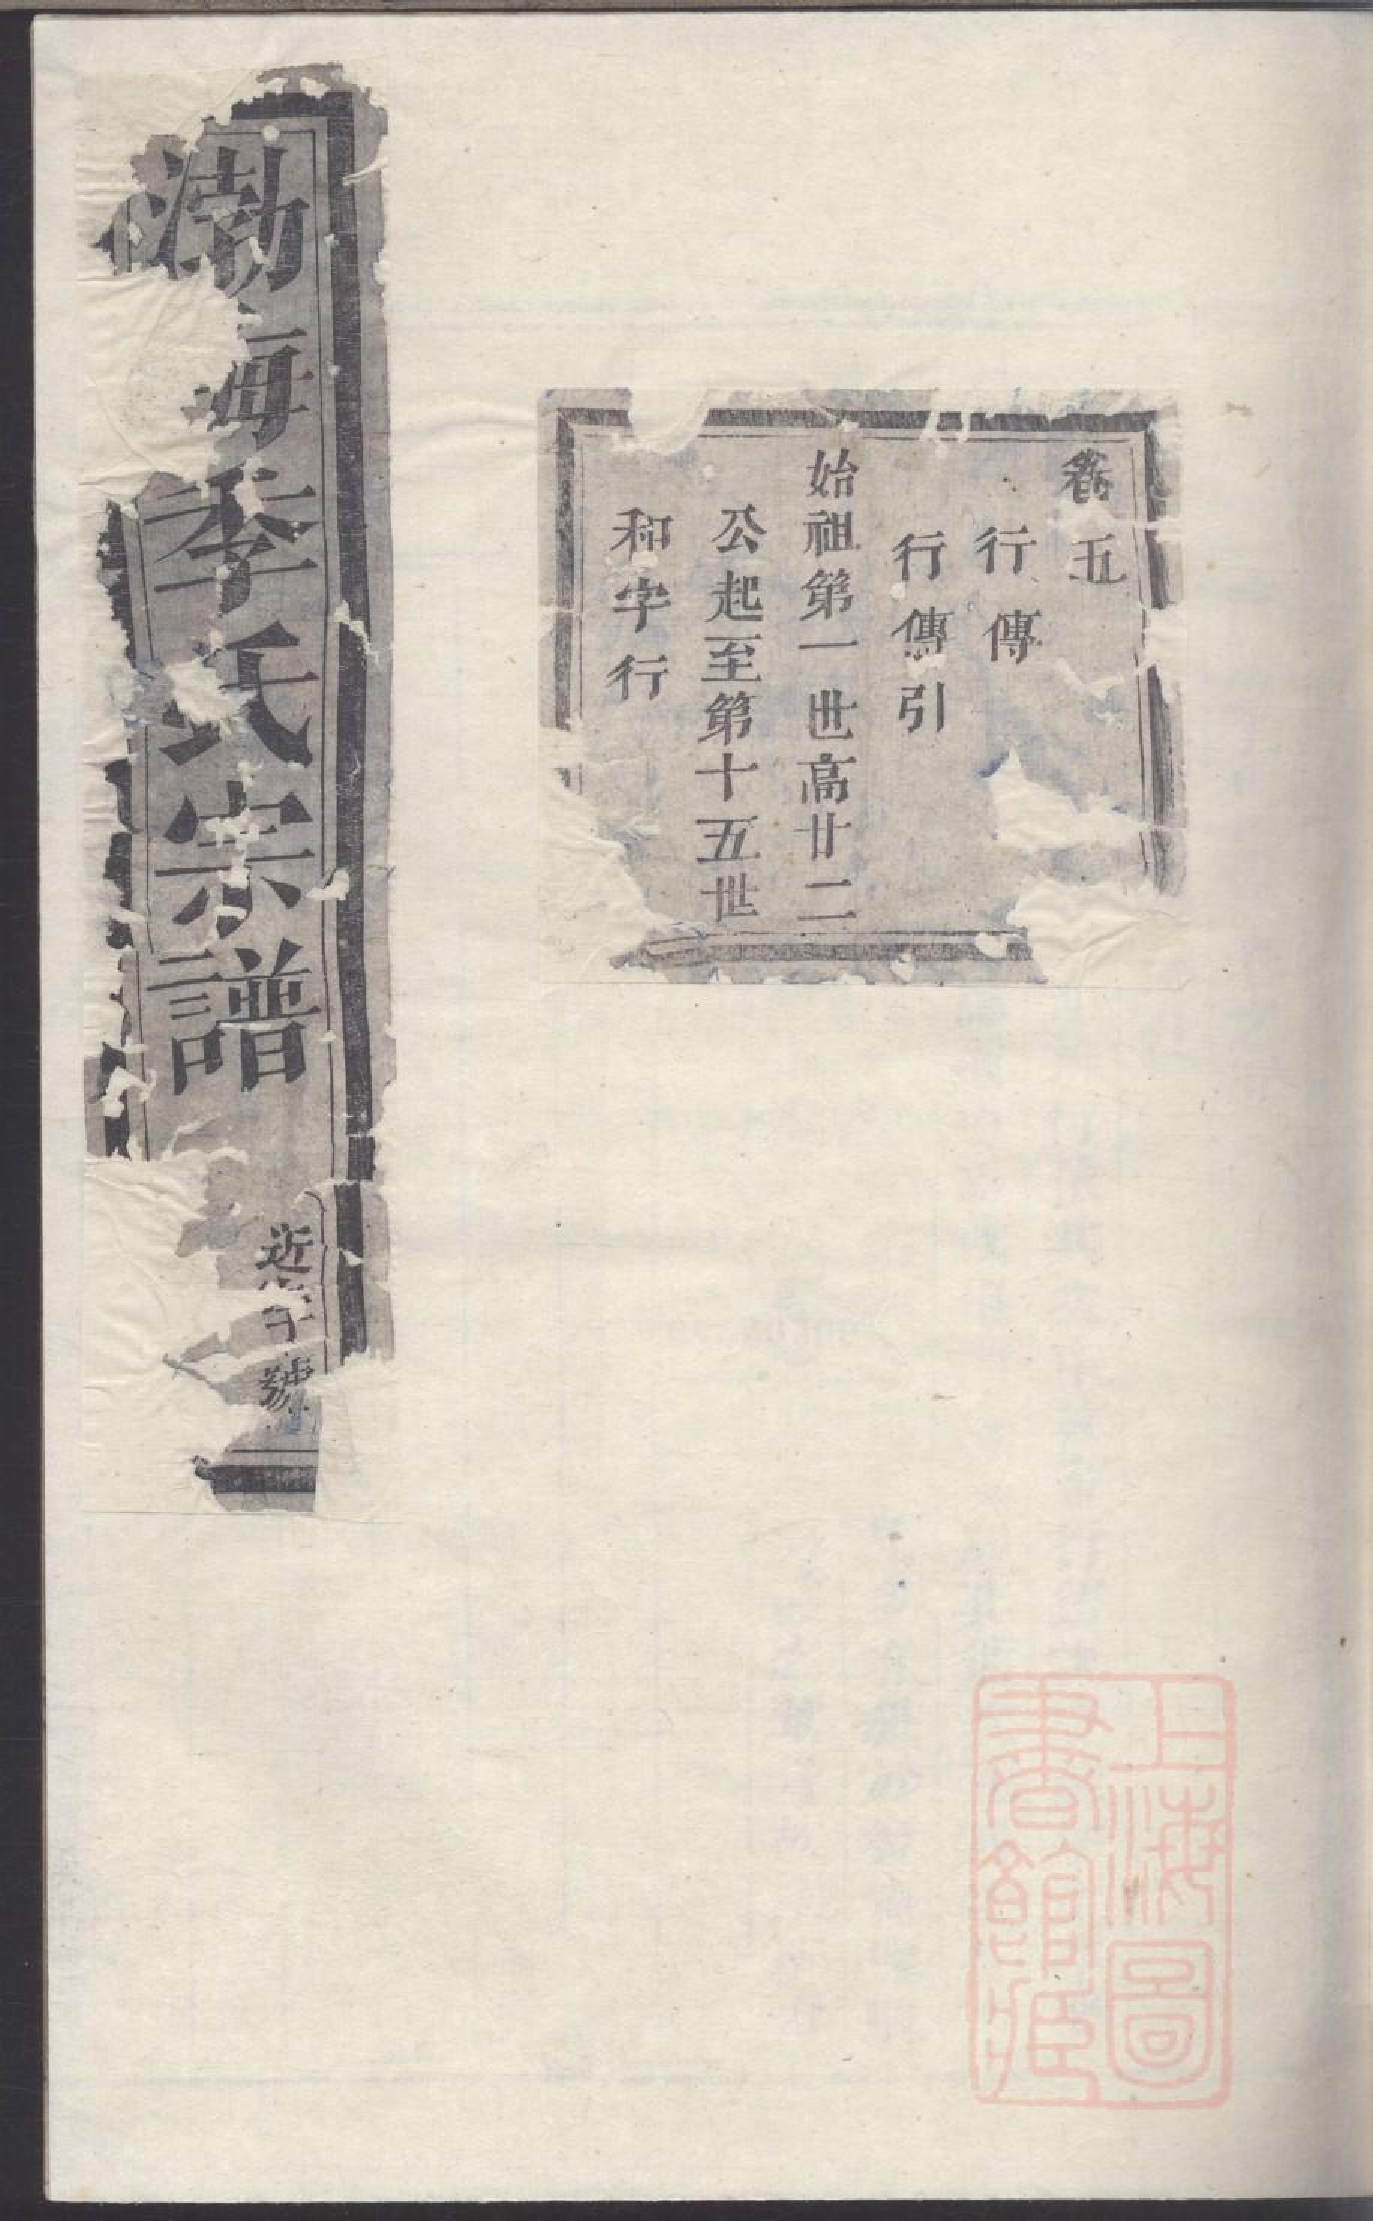 卷五
行傳
行傳引
始祖第一世高廿二
公起至第十五世
和字行
渤海季氏宗譜
近字號
上海圖
書館藏